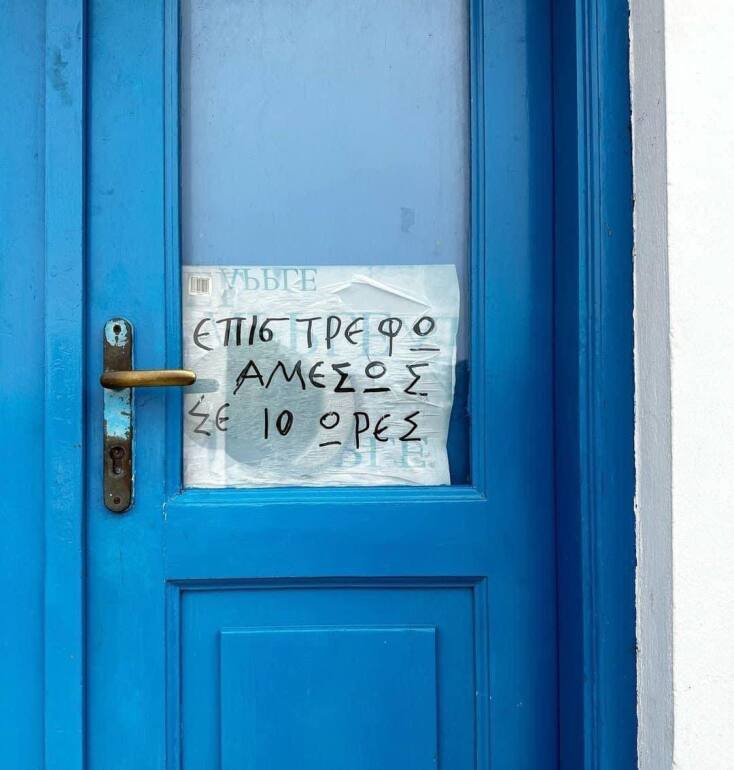 APPLE
ΕΠΙΣΤΡΕΦΩ
ΑΜΕΣΩΣ
ΣΕ 10 ΩΡΕΣ